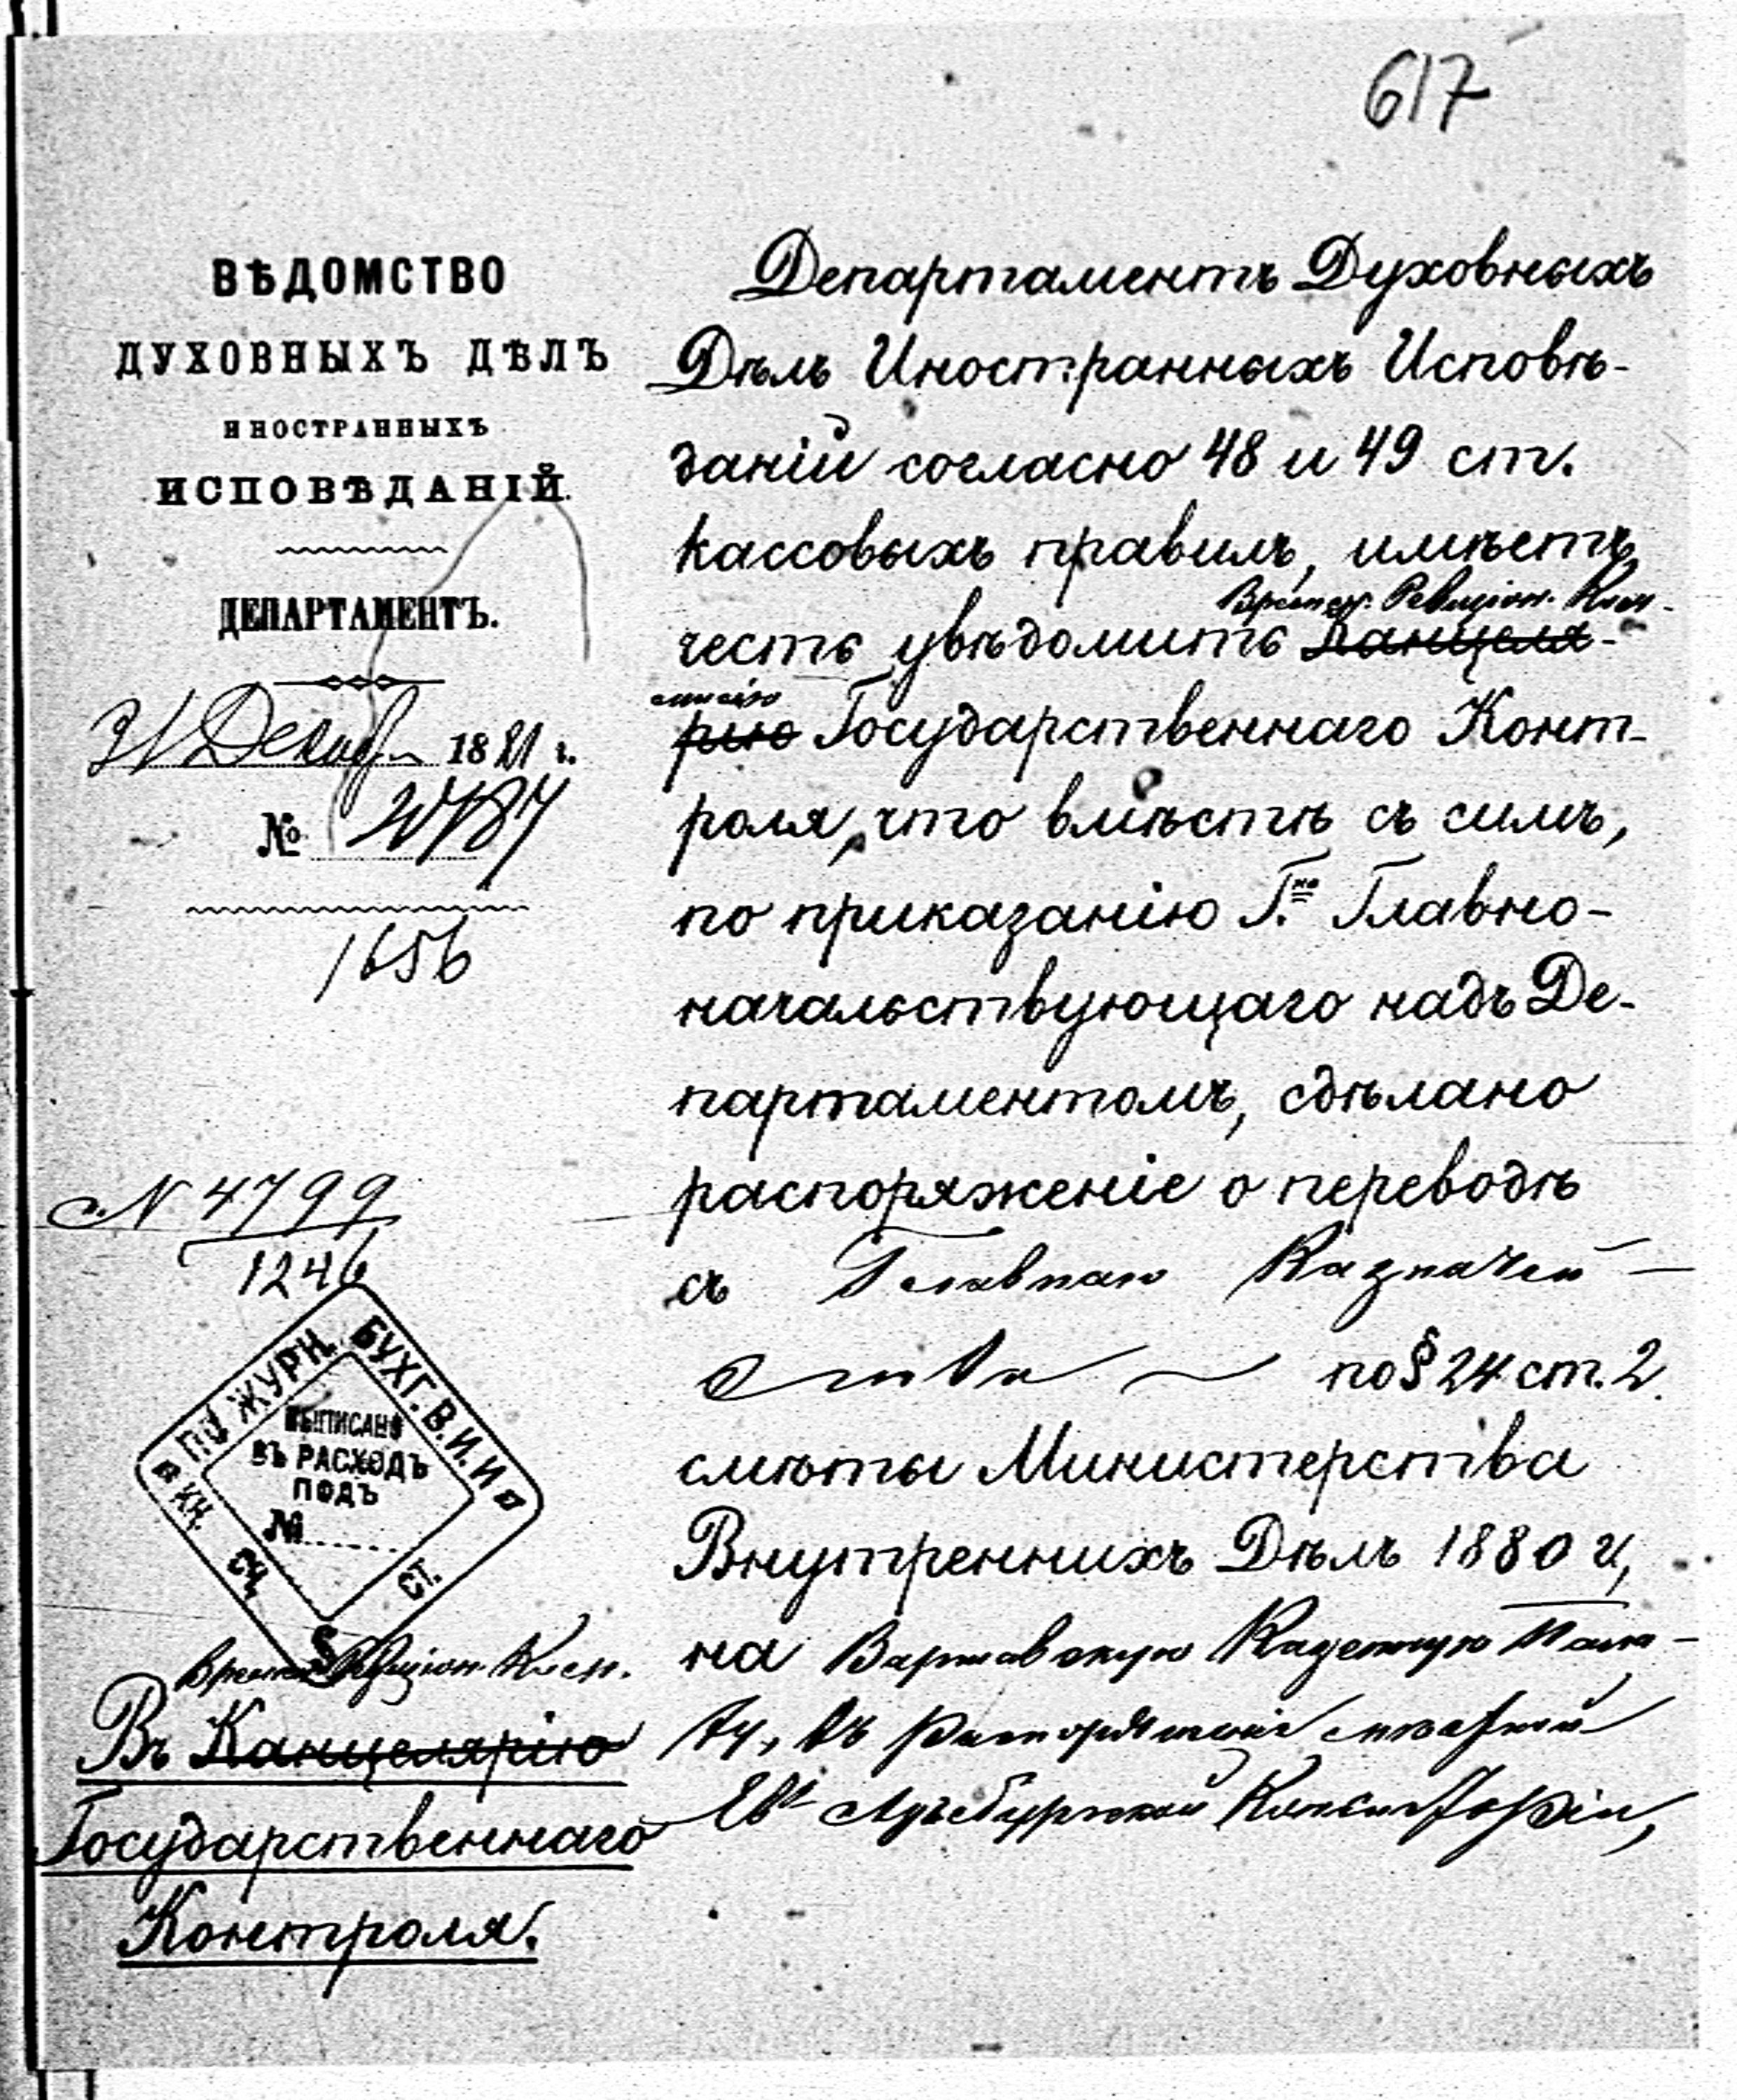 617
ВѢДОМСТВО
ДУХОВНЫХЪ ДѢЛЪ
ИНОСТРАННЫХЪ
ИСПОВѢДАНІЙ.
ДЕПАРТАМЕНТЪ.
31 Декабр 18 г.
№
1656
N 4799
1246
ПО ЖУРН. БУХГ. В. И. И
ВЫПИСАНО
ВЪ РАСХОДЪ
ПОДЪ
№
В КН. СЧ. § СТ.
Времен. Ревизіон. Ком.
Въ Канцелярію
Государственнаго
Контроля.
Департаментъ Духовныхъ
Дѣлъ Иностранныхъ Исповѣ-
даній согласно 48 и 49 ст.
кассовыхъ правилъ, имѣетъ
Времен. Ревизіон. Ком-
честь увѣдомить Канцеля-
мисію
рію Государственнаго Конт-
роля, что вмѣстѣ съ симъ,
по приказанію Г.на Главно-
начальствующаго надъ Де-
партаментомъ, сдѣлано
распоряженіе о переводѣ
съ Главнаго Казначей-
ства по § 24 ст. 2.
смѣты Министерства
Внутреннихъ Дѣлъ 1880 г,
на Варшавскую Казенную Пала-
ту, въ распоряженіе
Консисторіи,